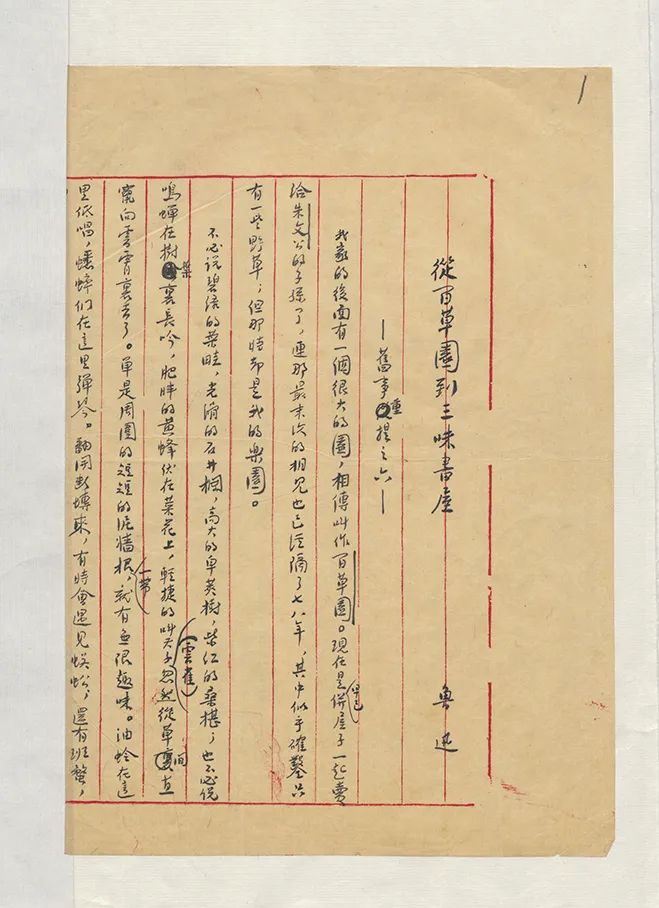 1
從百草園到三味書屋　魯迅
—舊事重提之六—
我家的後面有一個很大的園，相傳叫作百草園。現在是早已併屋子一起賣
給朱文公的子孫了，連那最末次的相見也已經隔了七八年，其中似乎確鑿只
有一些野草；但那時却是我的樂園。
不必說碧綠的菜畦，光滑的石井欄，高大的皁莢樹，紫紅的桑椹；也不必說
鳴蟬在樹葉裏長吟，肥胖的黃蜂伏在菜花上，輕捷的叫天子（雲雀）忽然從草間直
竄向雲霄裏去了。單是周圍的短短的泥牆根一帶，就有無限趣味。油蛉在這
里低唱，蟋蟀們在這里彈琴。翻開斷塼來，有時會遇見蜈蚣；還有班蝥，